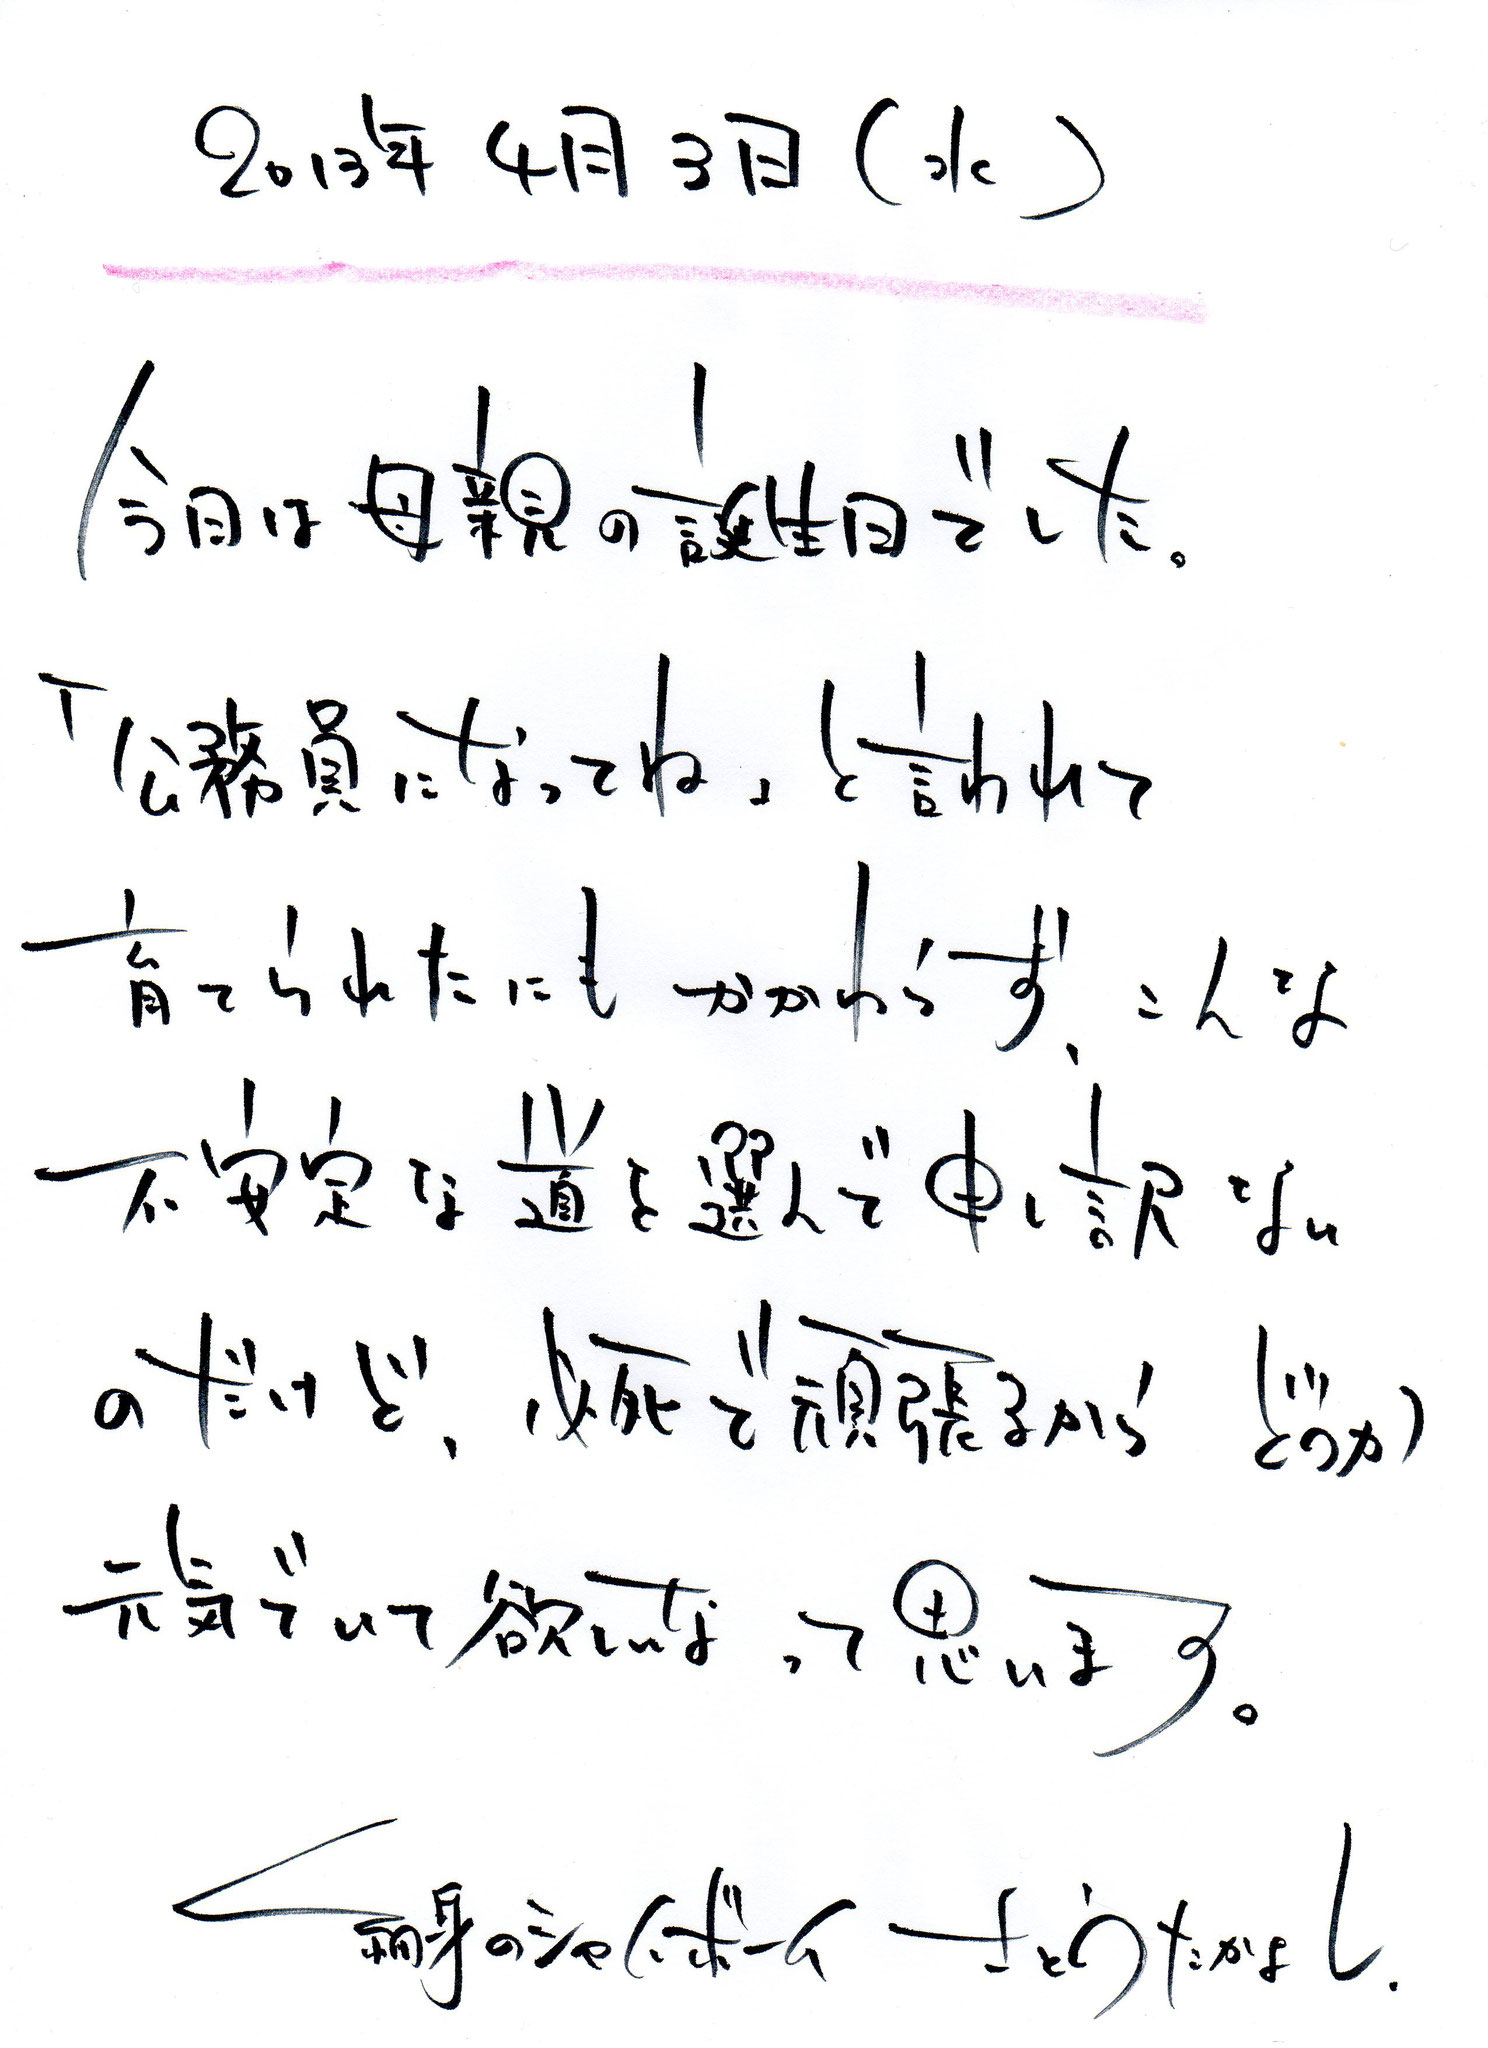 2013年4月3日(水)
今日は母親の誕生日でした。
「公務員になってね」と言われて
育てられたにもかかわらず、こんな
不安定な道を選んで申し訳ない
のだけど、必死で頑張るから どうか
元気でいて欲しいなって思います。
細身のシャイボーイ さとうたかよし.